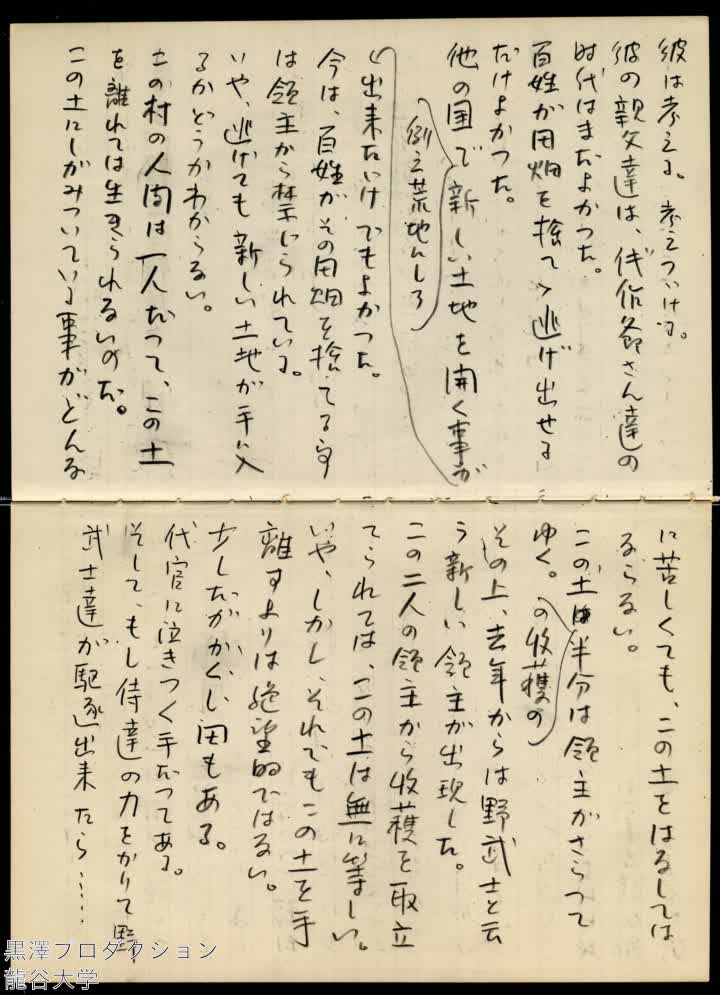 彼は考える。考えつづける。
彼の親父達は、儀作爺さん達の
時代はまだよかった。
百姓が田畑を捨てゝ逃げ出せる
だけよかった。
他の国で新しい土地を開く事が
例え荒地にしろ
出来たゞけでもよかった。
今は、百姓がその田畑を捨てる事
は領主から禁じられている。
いや、逃げても新しい土地が手に入
るかどうかわからない。
土の村の人間は一人だって、この土
を離れては生きられないのだ。
この土にしがみついている事がどんな
に苦しくても、この土をはなしては
ならない。
この土は半分は領主がさらって
の収穫の
ゆく。
その上、去年からは野武士と云
う新しい領主が出現した。
この二人の領主から収穫を取立
てられては、この土は無に等しい。
いや、しかし、それでもこの土を手
離すよりは絶望的ではない。
少しだがかくし田もある。
代官に泣きつく手だってある。
そして、もし侍達の力をかりて野
武士達が駆逐出来たら……
黒澤プロダクション
龍谷大学